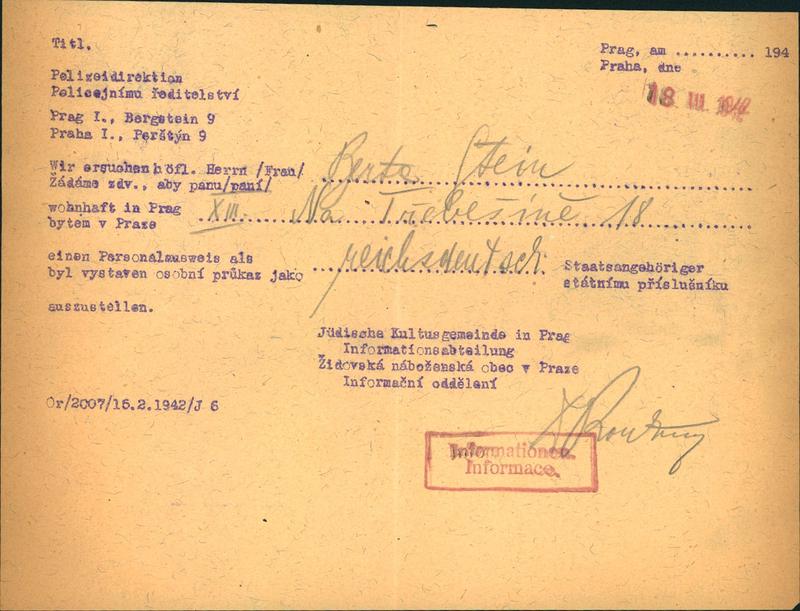 Titl.
Prag, am .......... 194
Praha, dne
18 III 1942
Polizeidirektion
Policejnímu ředitelství
Prag I., Bergstein 9
Praha I., Perštýn 9
Wir ersuchen höfl. Herrn /Frau/ Berta Stein
Žádáme zdv., aby panu/paní/
wohnhaft in Prag XIII. Na Třebešíně 18
bytem v Praze
einen Personalausweis als reichsdeutsch Staatsangehöriger
byl vystaven osobní průkaz jako státnímu příslušníku
auszustellen.
Jüdische Kultusgemeinde in Prag
Informationsabteilung
Židovská náboženská obec v Praze
Informační oddělení
Or/2007/16.2.1942/J 6
Informationen.
Informace.